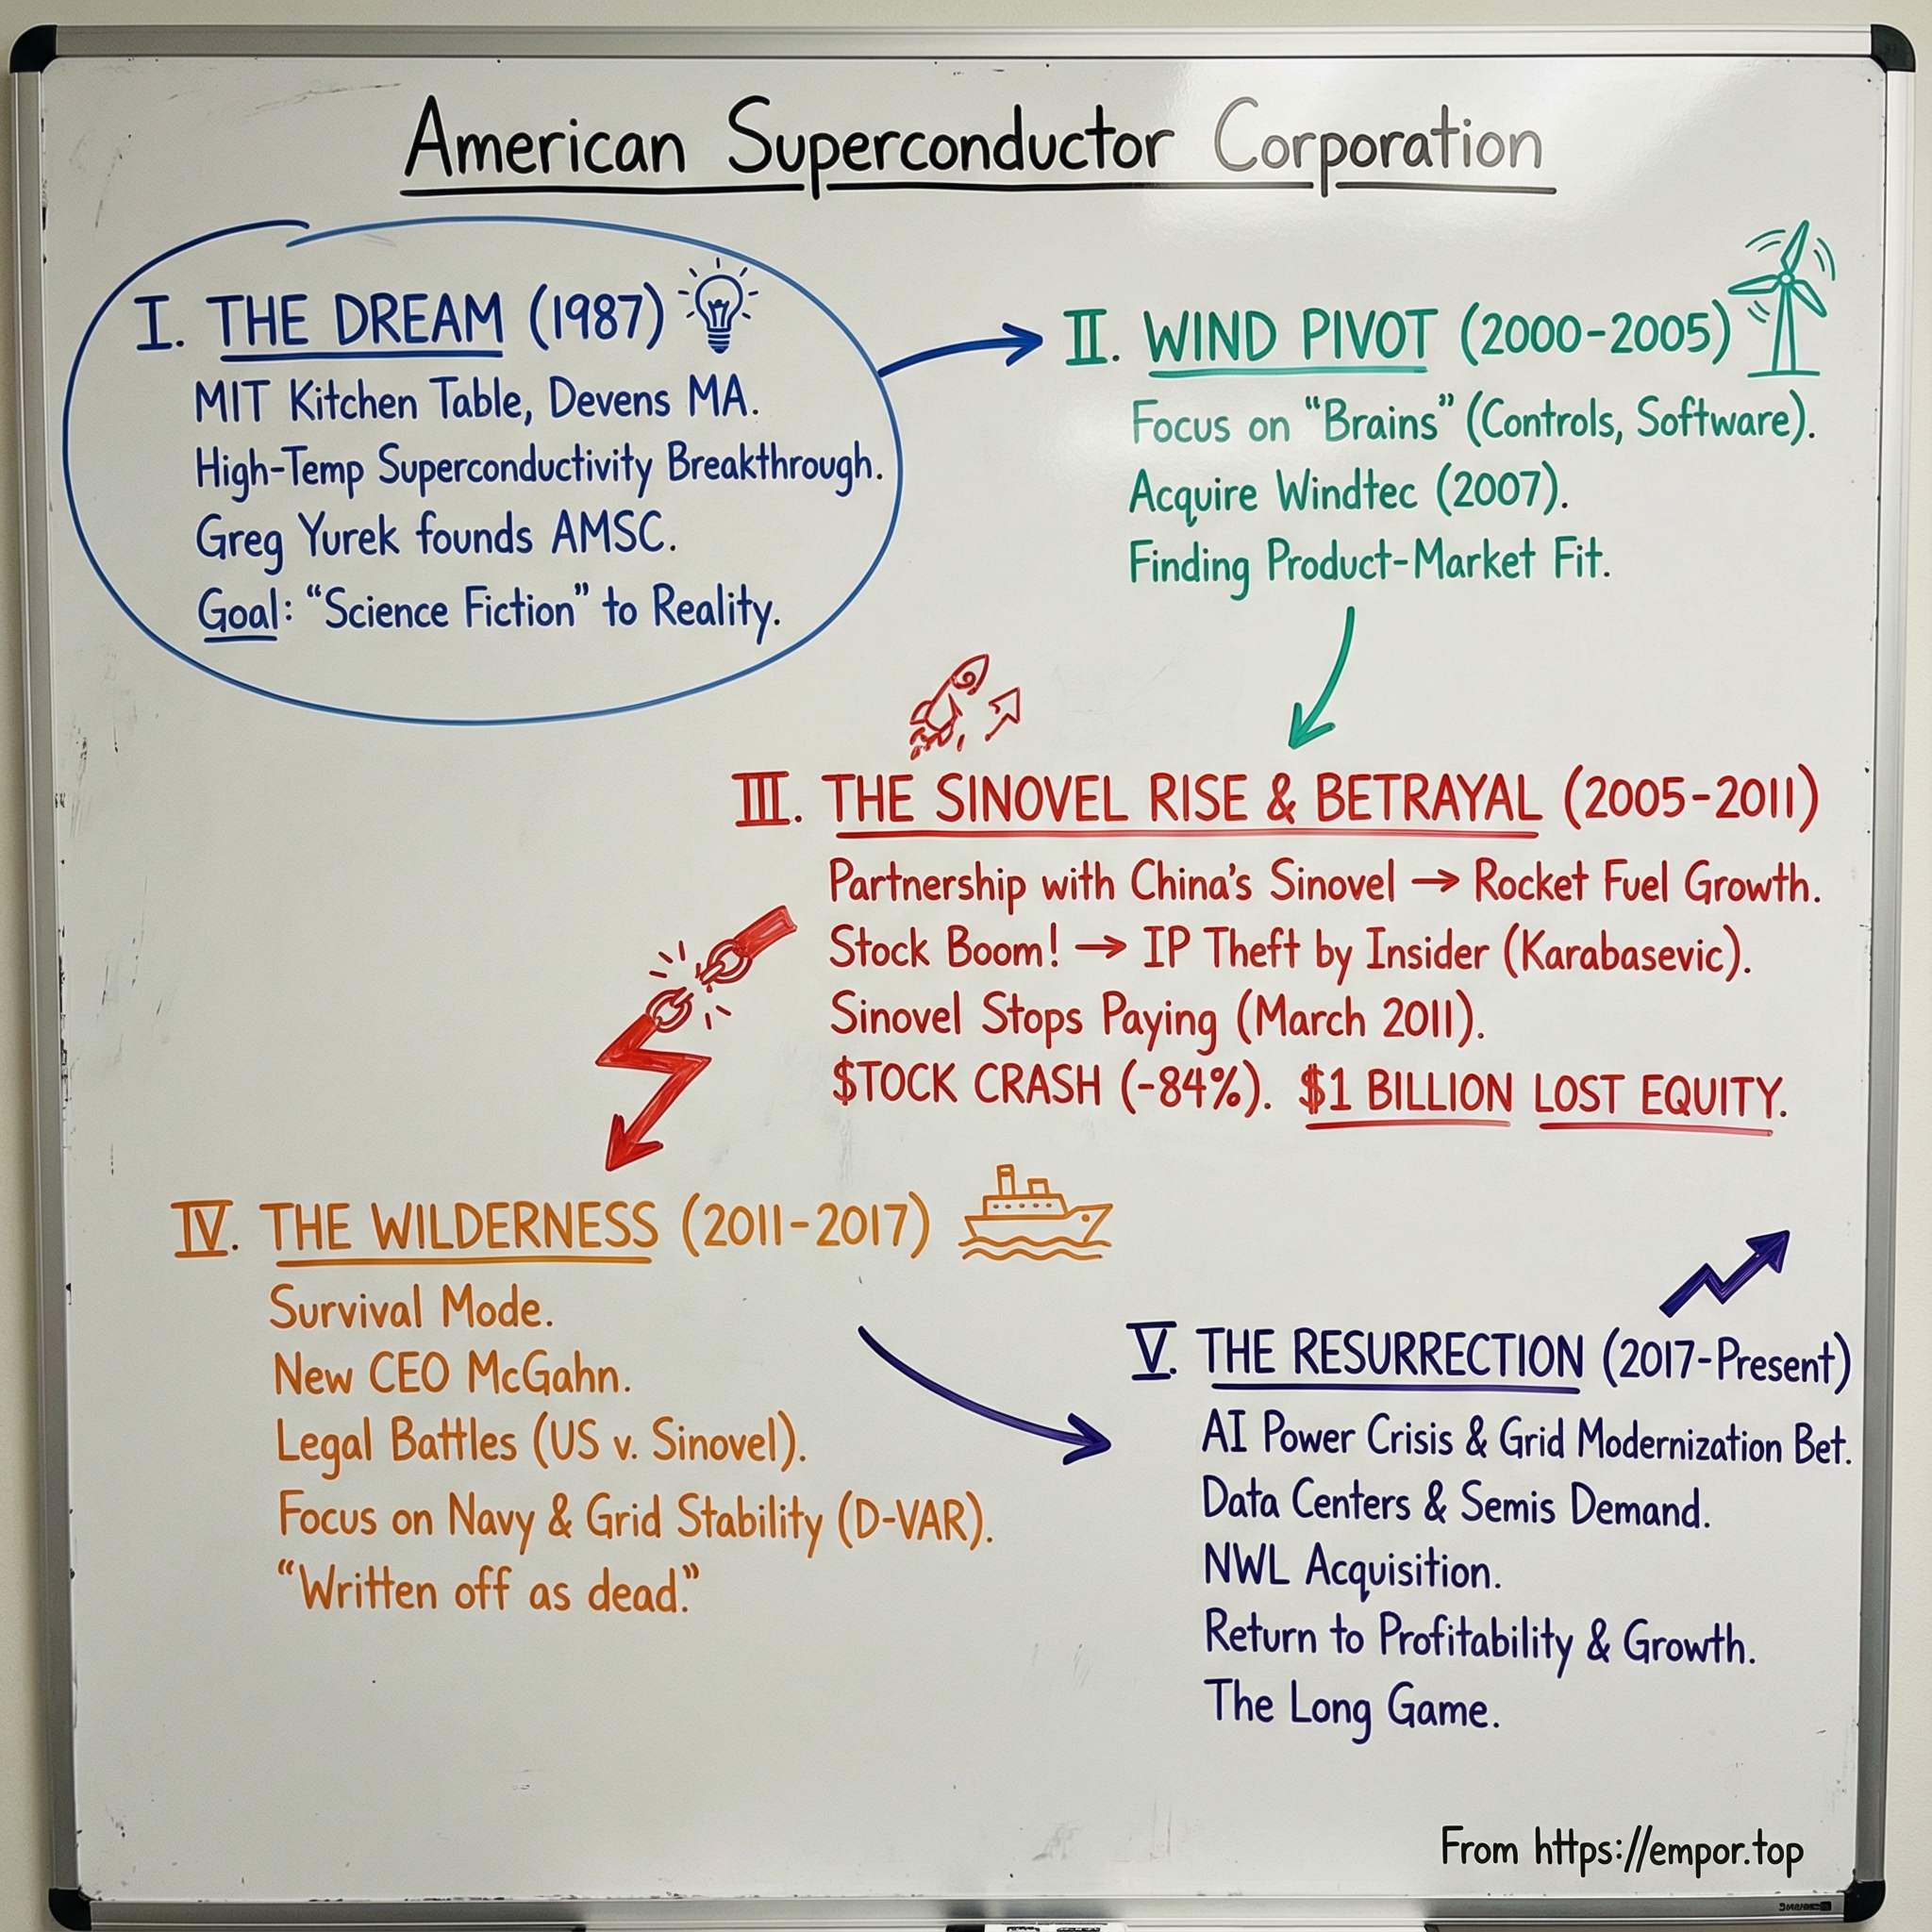 American Superconductor Corporation
I. THE DREAM (1987)
MIT Kitchen Table, Devens MA.
High-Temp Superconductivity Breakthrough.
Greg Yurek founds AMSC.
Goal: “Science Fiction” to Reality.
II. WIND PIVOT (2000-2005)
Focus on “Brains” (Controls, Software).
Acquire Windtec (2007).
Finding Product-Market Fit.
III. THE SINOVEL RISE & BETRAYAL (2005-2011)
Partnership with China’s Sinovel → Rocket Fuel Growth.
Stock Boom! → IP Theft by Insider (Karabasevic).
Sinovel Stops Paying (March 2011).
$TOCK CRASH (-84%). $1 BILLION LOST EQUITY.
IV. THE WILDERNESS (2011-2017)
Survival Mode.
New CEO McGahn.
Legal Battles (US v. Sinovel).
Focus on Navy & Grid Stability (D-VAR).
“Written off as dead.”
V. THE RESURRECTION (2017-Present)
AI Power Crisis & Grid Modernization Bet.
Data Centers & Semis Demand.
NWL Acquisition.
Return to Profitability & Growth.
The Long Game.
From https://empor.top